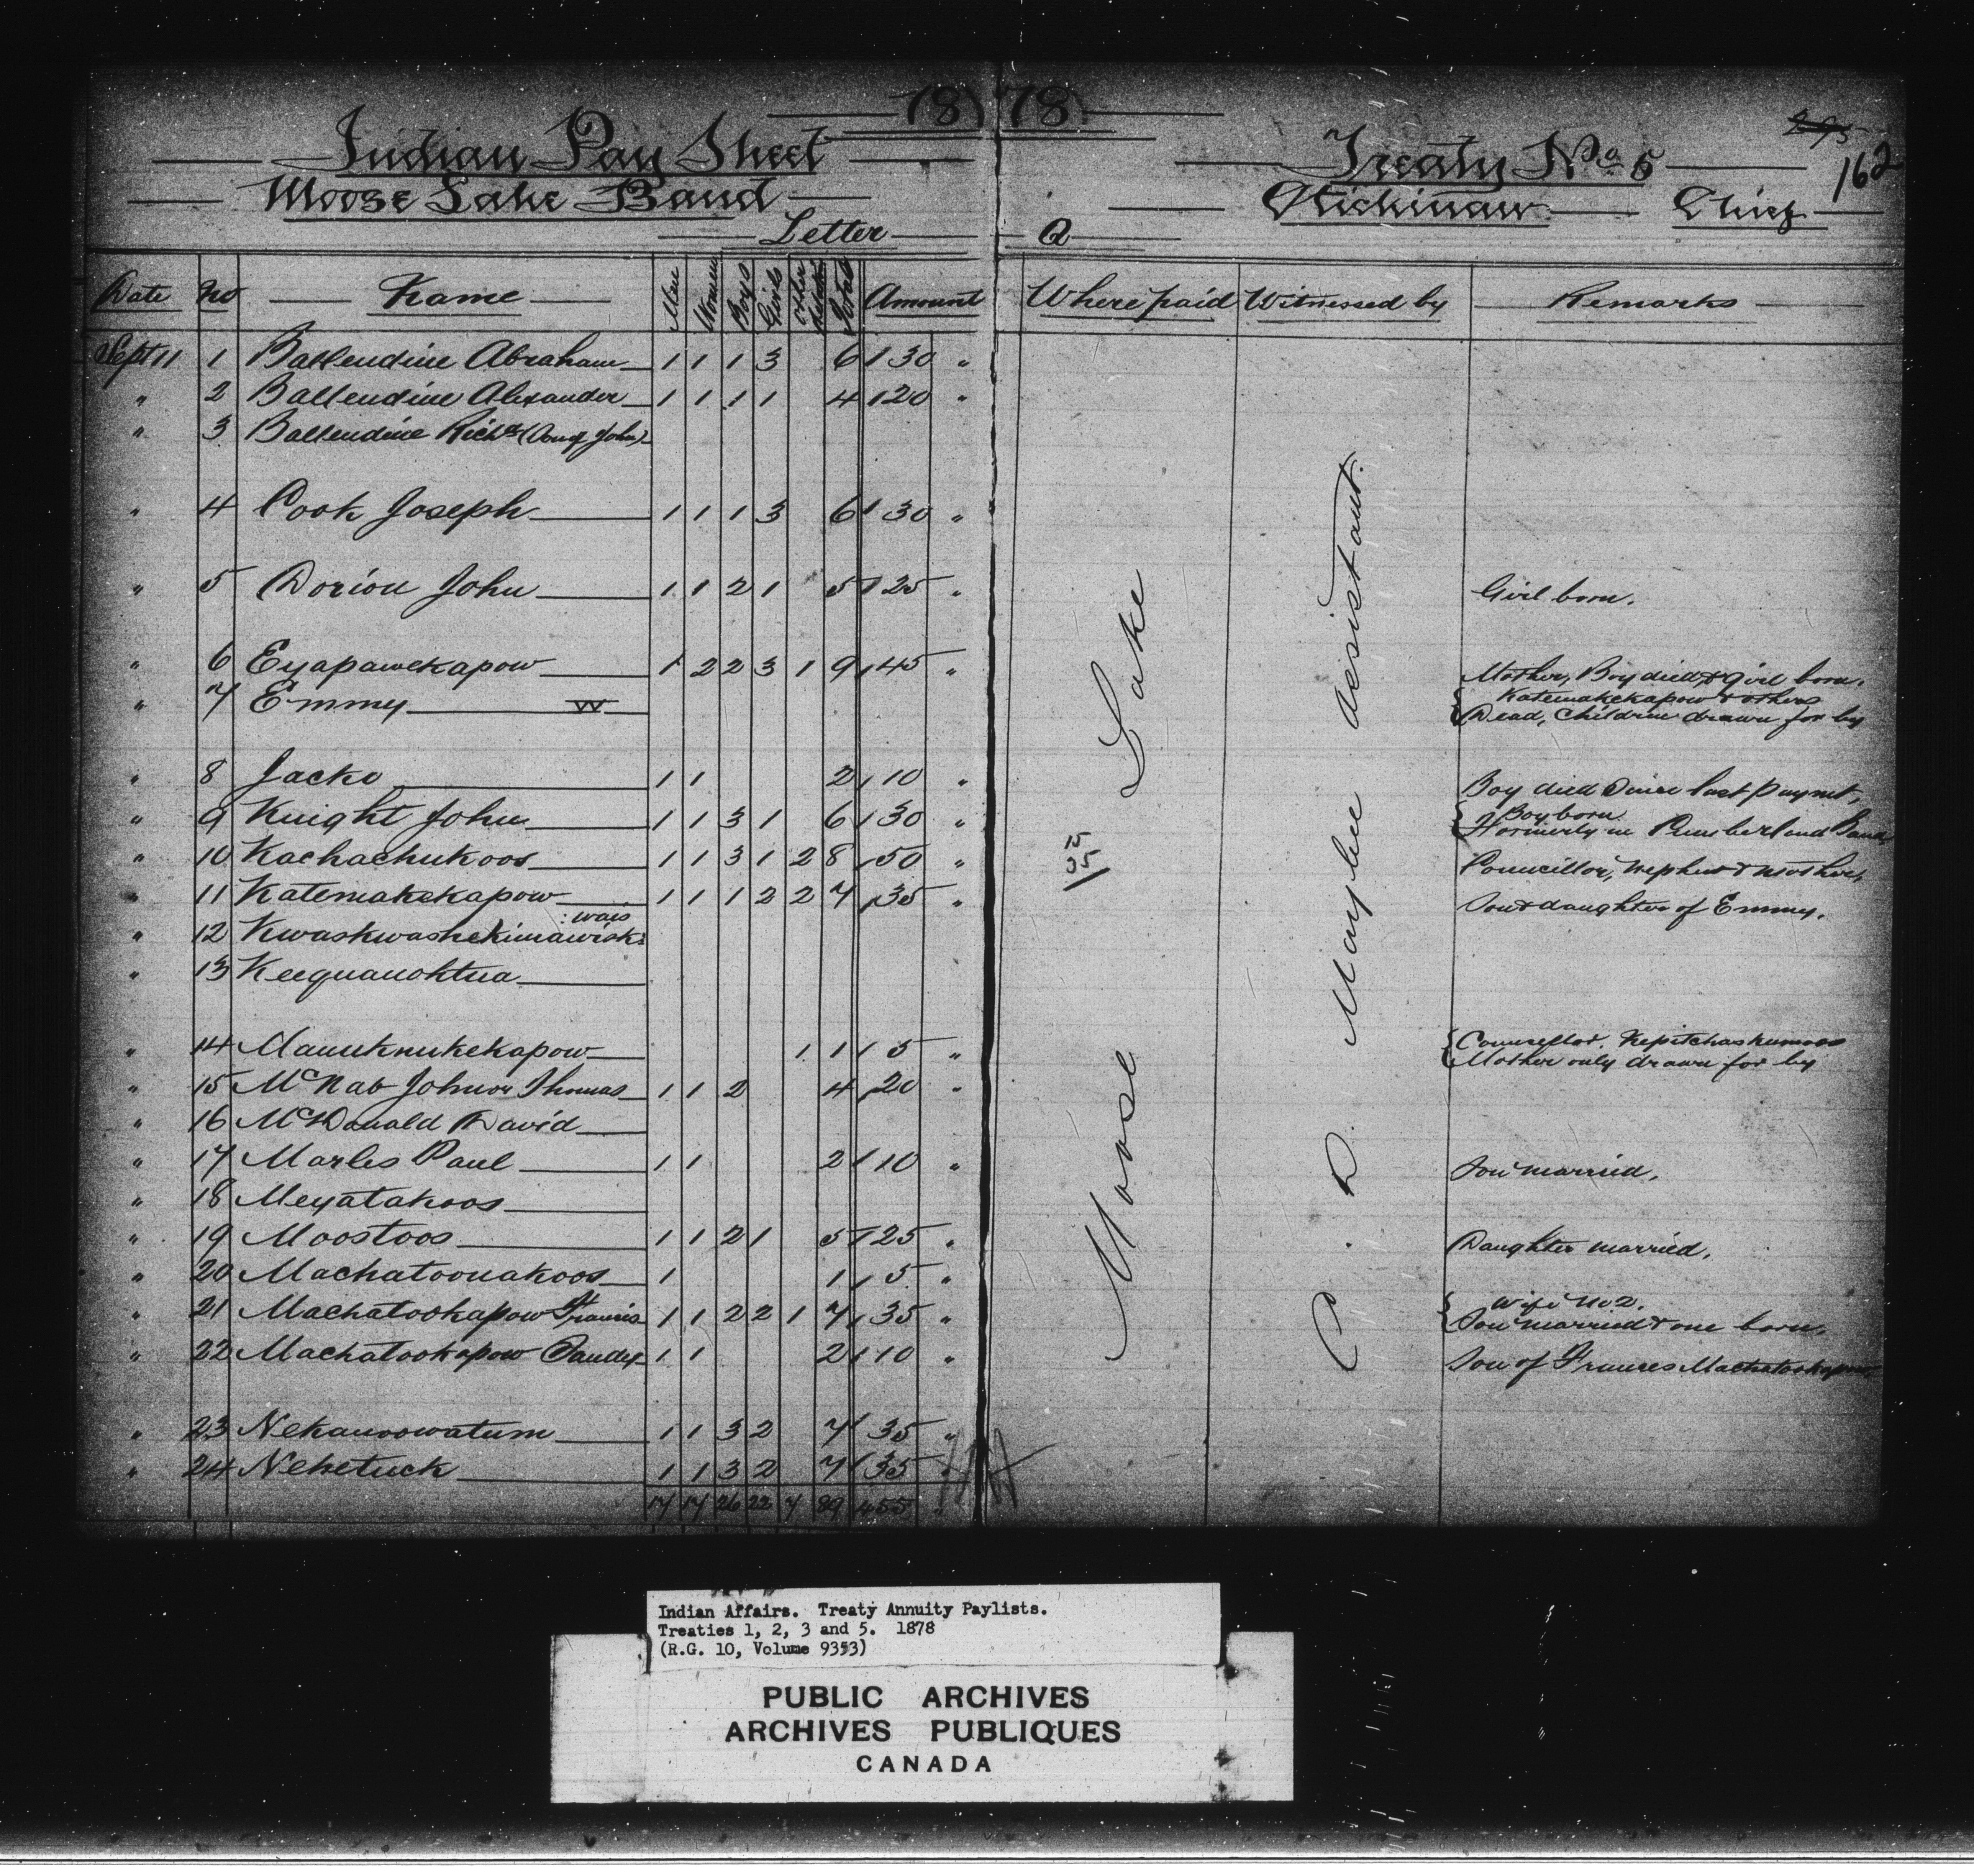 1878
Indian Pay Sheet Treaty No 5
295
162
Moose Lake Band Chief
Letter A
Date No Name Men Women Boys Girls Other Total Amount Where paid Witnessed by Remarks
Sept 11 1 Ballendine Abraham 1 1 1 3 6 30 "
" 2 Ballendine Alexander 1 1 1 1 4 20 "
" 3 Ballendine Richd (Son of John)
" 4 Cook Joseph 1 1 1 3 6 30 "
" 5 Dorion John 1 1 2 1 5 25 " Girl born.
" 6 Eyapawekapow 1 2 2 3 1 9 45 " Mother, Boy died & girl born.
" 7 Emmy W { Katemakekapow & others
Dead, Children drawn for by
" 8 Jacko 1 1 2 10 " Boy died since last paymt,
" 9 Knight John 1 1 3 1 6 30 " { Boy born
Formerly in Cumberland Band,
" 10 Kachachukoos 1 1 3 1 2 8 50 " Councillor, nephew & mother,
" 11 Katemakekapow 1 1 1 2 2 7 35 " Son & daughter of Emmy.
: wais
" 12 Kwaskwashekimawisk:
" 13 Keequanohtua
" 14 Manuknukekapow 1 1 5 " { Councillor. Kepitchaskumoos
Mother only drawn for by
" 15 McNab John or Thomas 1 1 2 4 20 "
" 16 McDonald David
" 17 Marles Paul 1 1 2 10 " Son married,
" 18 Meyatakoos
" 19 Moostoos 1 1 2 1 5 25 " Daughter married,
" 20 Machatoonakoos 1 1 5 "
" 21 Machatookapow Francis 1 1 2 2 1 7 35 " { Wife No 2.
Son married & one born,
" 22 Machatookapow Sandy 1 1 2 10 " Son of Frances Machatookapow,
" 23 Nekanoowatum 1 1 3 2 7 35 "
" 24 Neketuck 1 1 3 2 7 35 "
17 17 26 22 7 89 455 "
Moose Lake
15
35
C. D. Mayhew Assistant.
Indian Affairs. Treaty Annuity Paylists.
Treaties 1, 2, 3 and 5. 1878
(R.G. 10, Volume 9353)
PUBLIC ARCHIVES
ARCHIVES PUBLIQUES
CANADA